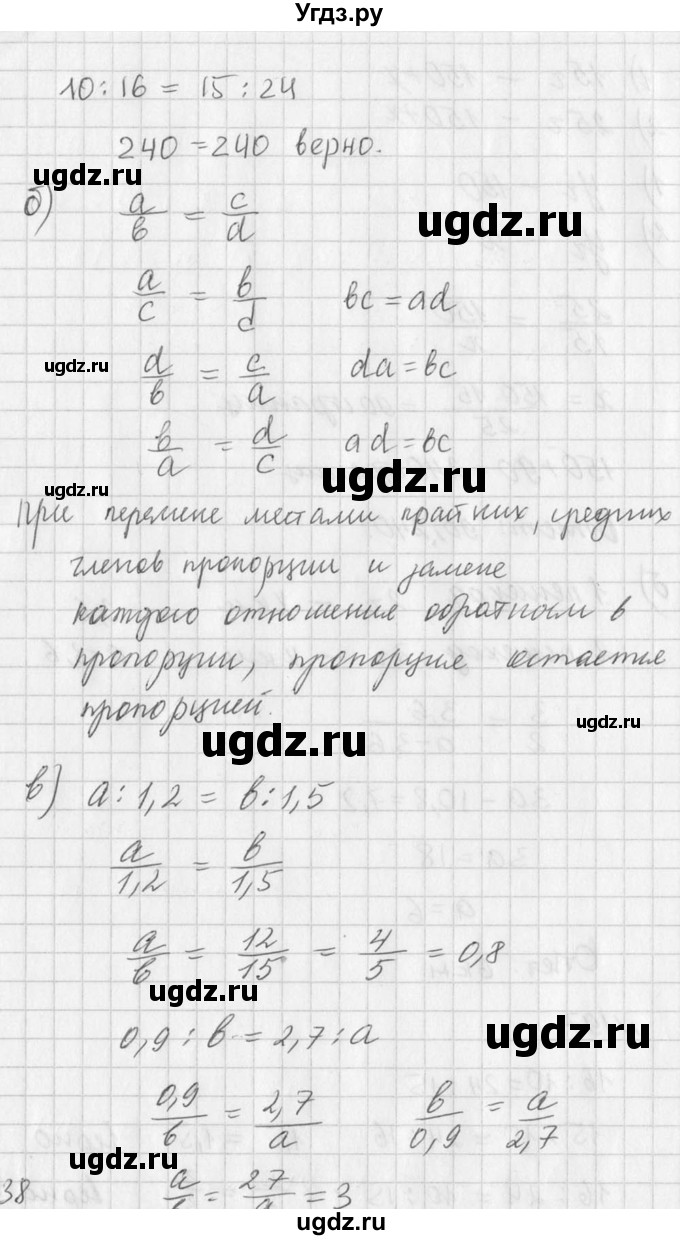 Угдз.ру
10 : 16 = 15 : 24
240 = 240 верно.
ugdz.ru
б) a/в = c/d
ugdz.ru
a/c = в/d   вc = ad
ugdz.ru
d/в = c/a   da = вc
в/a = d/c   ad = вc
ugdz.ru
ugdz.ru
При перемене местами крайних, средних
членов пропорции и замене
каждого отношения обратным в
пропорции, пропорция остается
пропорцией.
ugdz.ru
ugdz.ru
в) a : 1,2 = в : 1,5
a/1,2 = в/1,5
a/в = 12/15 = 4/5 = 0,8
ugdz.ru
0,9 : в = 2,7 : a
ugdz.ru
0,9/в = 2,7/a   в/0,9 = a/2,7
ugdz.ru
38   = 27/ = 3
ugdz.ru